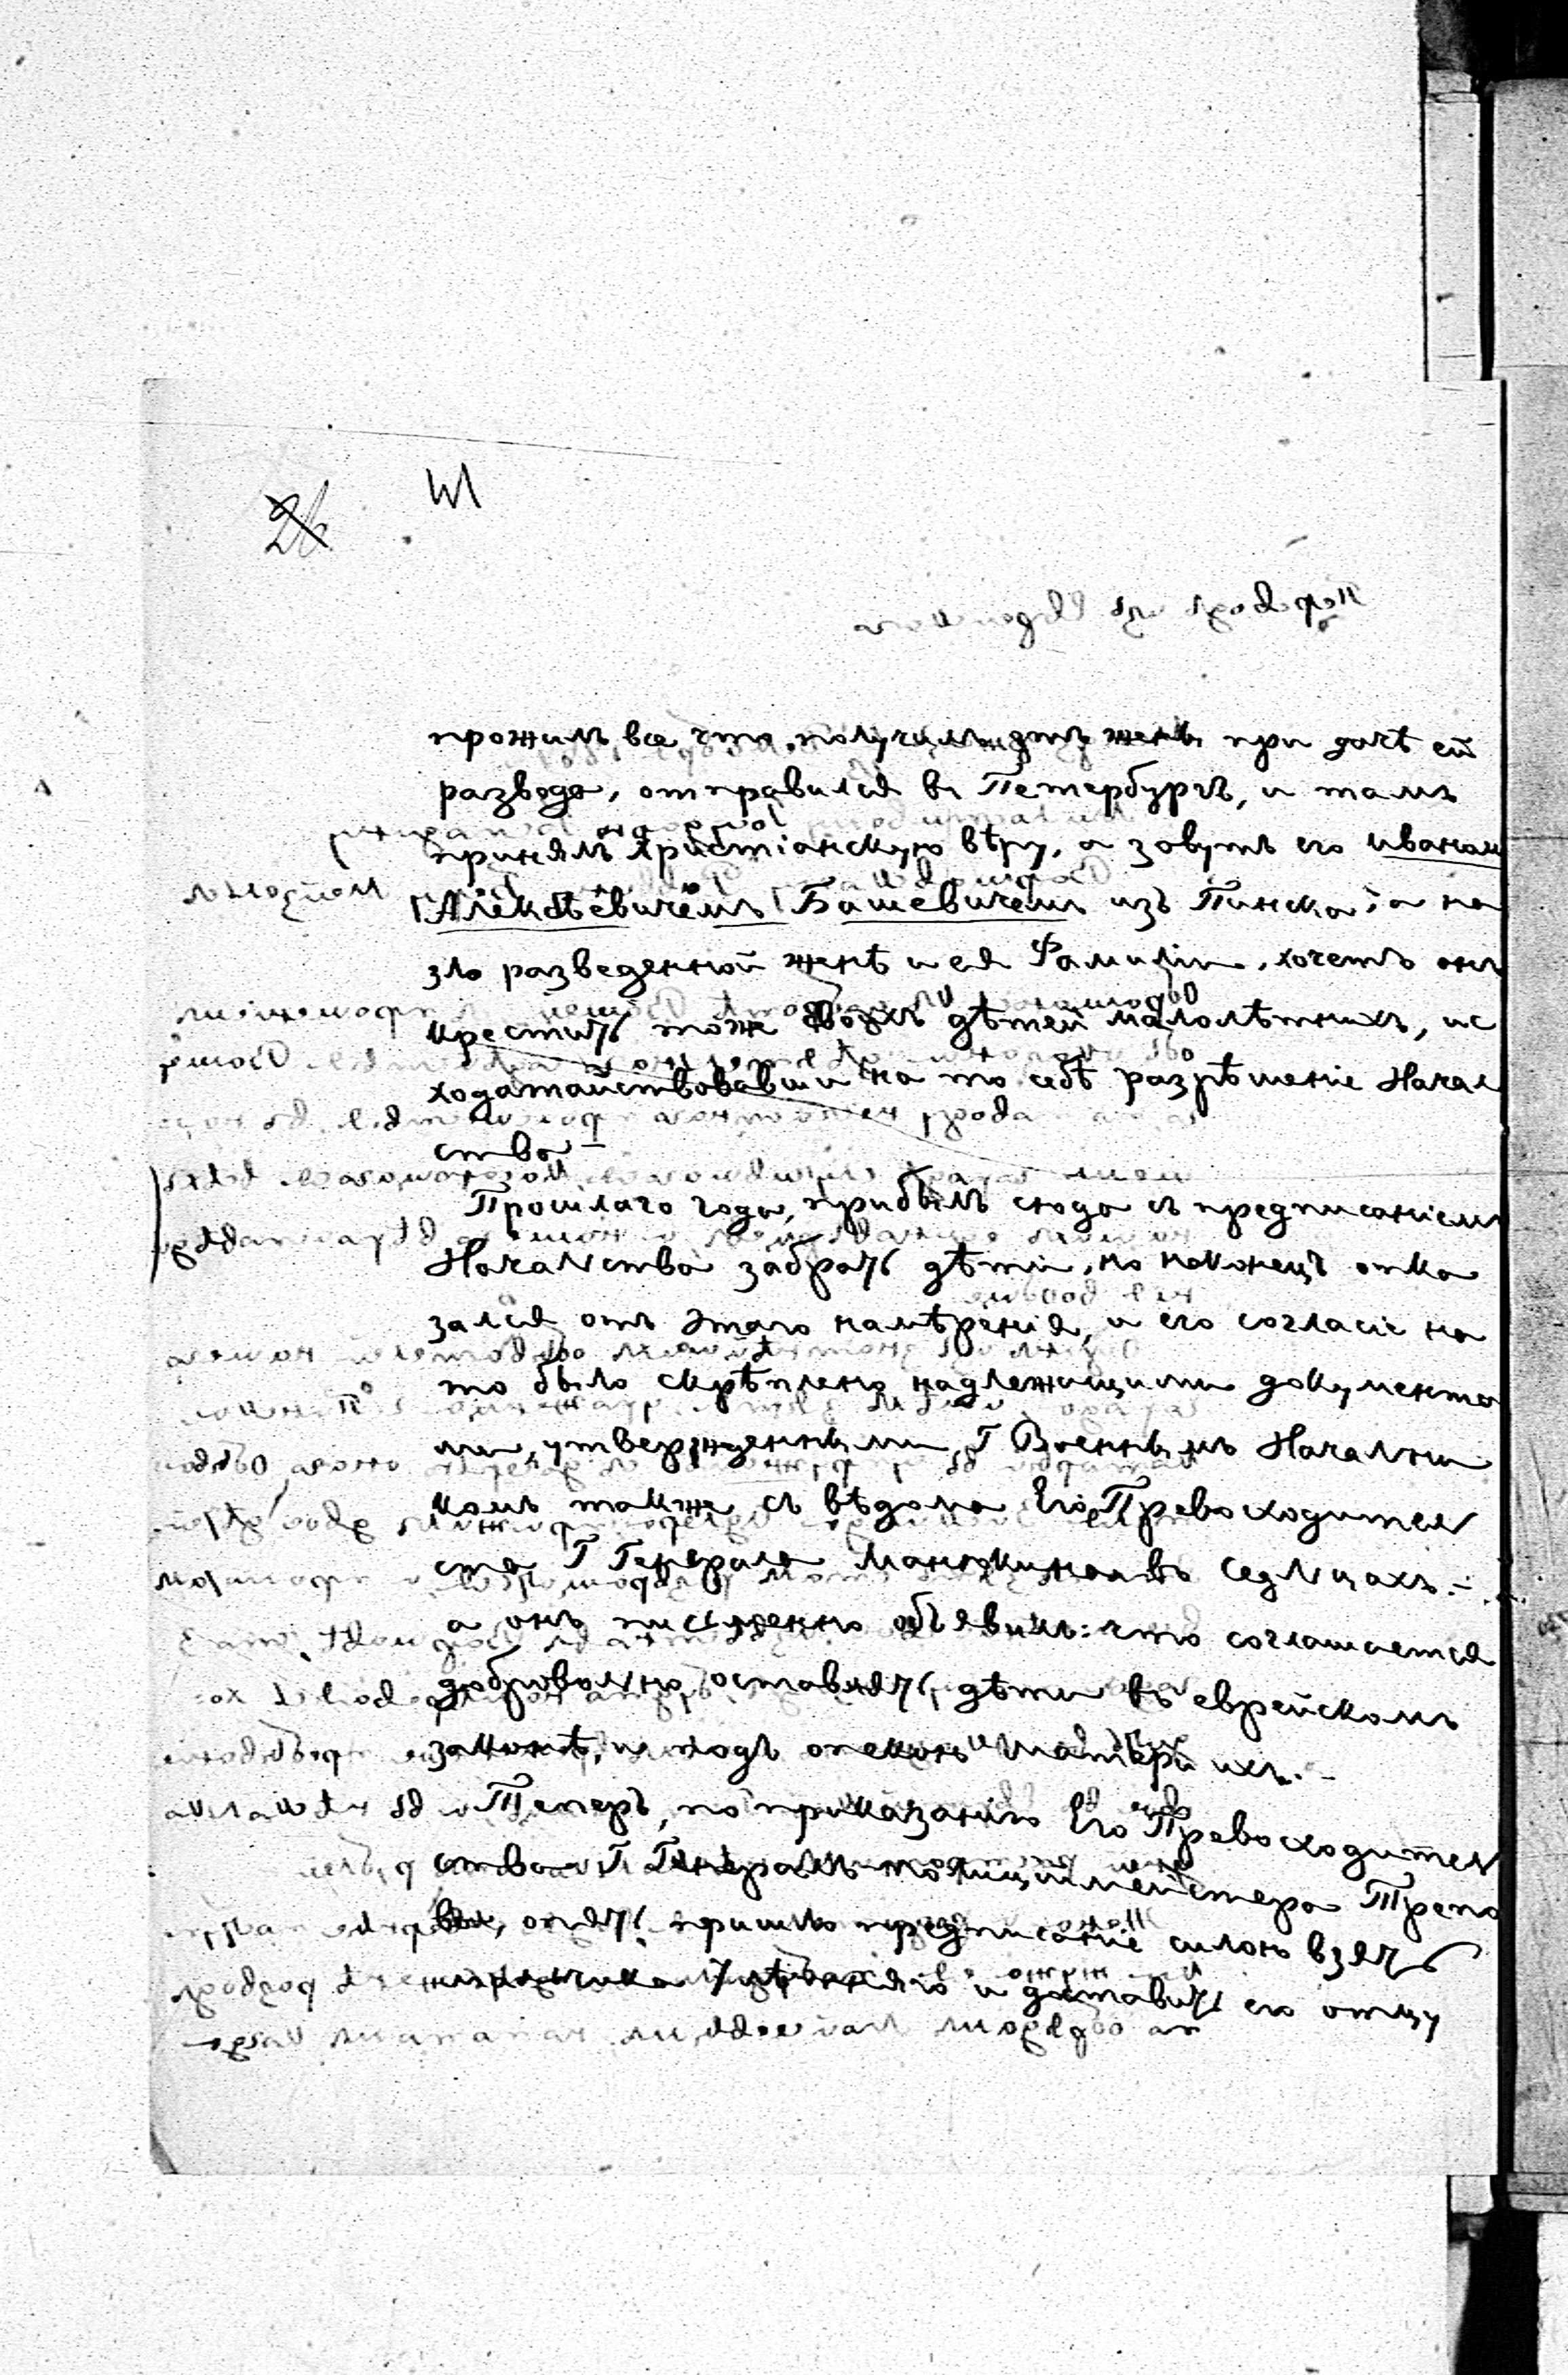 26
прожилъ все что получилъ отъ жены при дачѣ ей
развода, отправился въ Петербургъ, и тамъ
принялъ христіанскую вѣру, а зовутъ его Иваном
Алексѣевичемъ Башевичемъ изъ Пинска, а на
зло разведенной женѣ и ея Фамиліи, хочетъ онъ
крестить тоже двоихъ дѣтей малолѣтнихъ, ис
ходатайствовавши на то себѣ разрѣшеніе Начал
ства –
Прошлаго года, прибылъ сюда съ предписаніемъ
Началства забрать дѣти, но наконецъ отка
зался отъ этаго намѣренія, и его согласіе на
то было скрѣплено надлежищими документа
ми, утвержденными Г Военнымъ Начални
комъ также съ вѣдома Его Превосходител
ства Г Генерала Манюкина въ Седлцахъ.–
а онъ писменно объявилъ: что соглашается
доброволно оставить дѣти въ еврейскомъ
законѣ, и подъ опекою матери ихъ.–
Теперъ, по приказанію Его Превосходител
ства Г Генералъ полицимейстера Трепо
ва, опять пришло предписаніе силою взять
7 лѣтняго и доставить его отцу